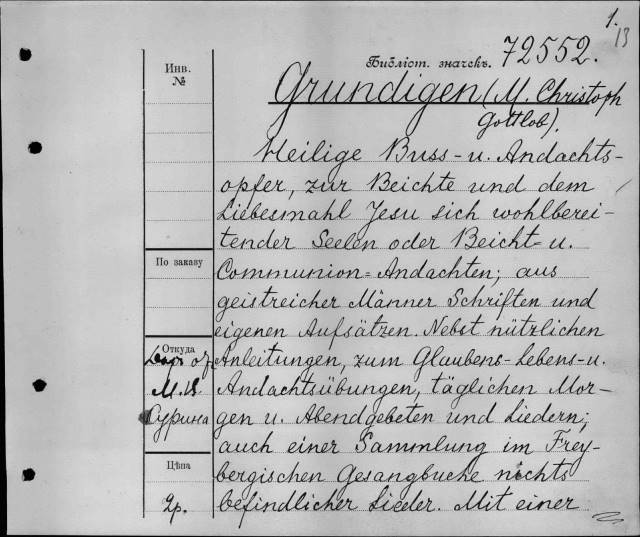 1.
13
Библіот. значекъ. 72552.
Инв.
№
Grundigen (M. Christoph
Gottlob).
Heilige Buss- u. Andachts-
opfer, zur Beichte und dem
Liebesmahl Jesu sich wohlberei-
tender Seelen oder Beicht- u.
По заказу
Communion-Andachten; aus
geistreicher Männer Schriften und
eigenen Aufsätzen. Nebst nützlichen
Откуда
Anleitungen, zum Glaubens-Lebens-u.
Andachtsübungen, täglichen Mor-
Сурина
gen u. Abendgebeten und Liedern;
auch einer Sammlung im Frey-
Цѣна
bergischen Gesangbuche nichts
2р.
befindlicher Lieder. Mit einer